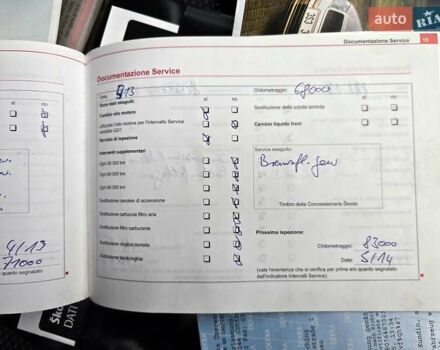 auto
RIA
353
Documentazione Service
19
Documentazione Service
Data: 9/13
Chilometraggio: 68000
Sono stati eseguiti:
sì
no
sì
no
sì
no
Cambio olio motore
Sostituzione della sonda lambda
utilizzato l'olio motore per l'intervallo Service
variabile QG1
Cambio liquido freni
Servizio di ispezione
Interventi supplementari
Service eseguito:
Ogni 30 000 km
Bremsfl. gew.
Ogni 60 000 km
Ogni 90 000 km
Sostituzione candele di accensione
Timbro della Concessionaria Škoda
Sostituzione cartuccia filtro aria
Sostituzione filtro carburante
Prossima ispezione:
Sostituzione cinghia dentata
Chilometraggio: 83000
Sostituzione tendicinghia
Data: 5/14
(vale l'evenienza che si verifica per prima e/o quanto segnalato
dall'indicatore Intervalli Service)
4/13
71000
e/o quanto segnalato
Ško
DATI